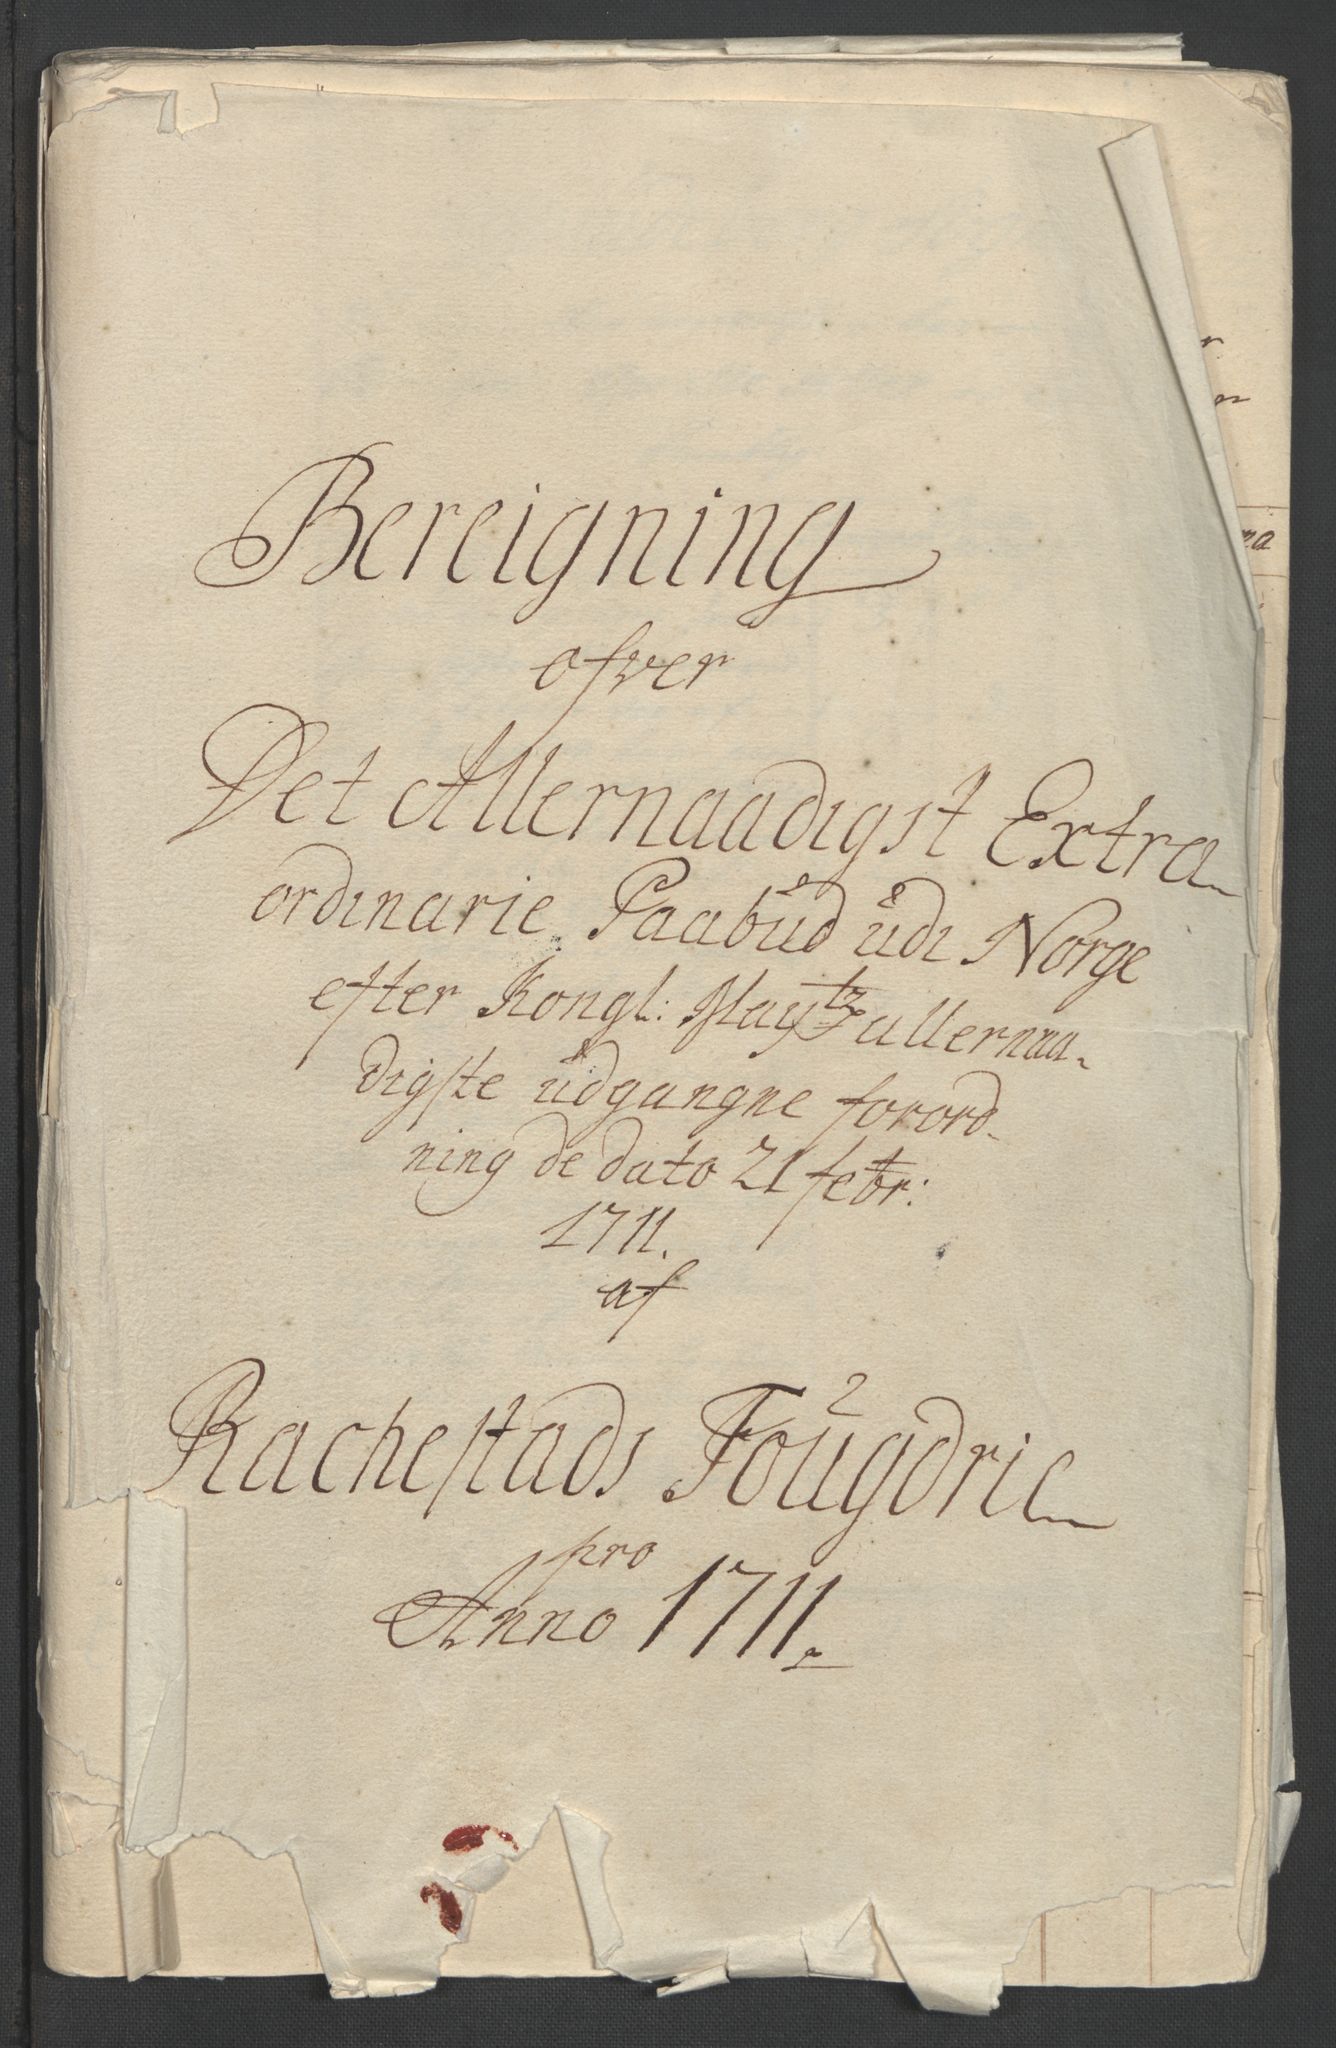 Bereigning
ofver
Det Allernaadigst Extra-
ordinarie Paabud udi Norge
efter Kongl: Maytz allernaa-
digste udgangne forord-
ning de dato 21 febr:
1711.
af
Rachestads Fougdrie
pro
Anno 1711.